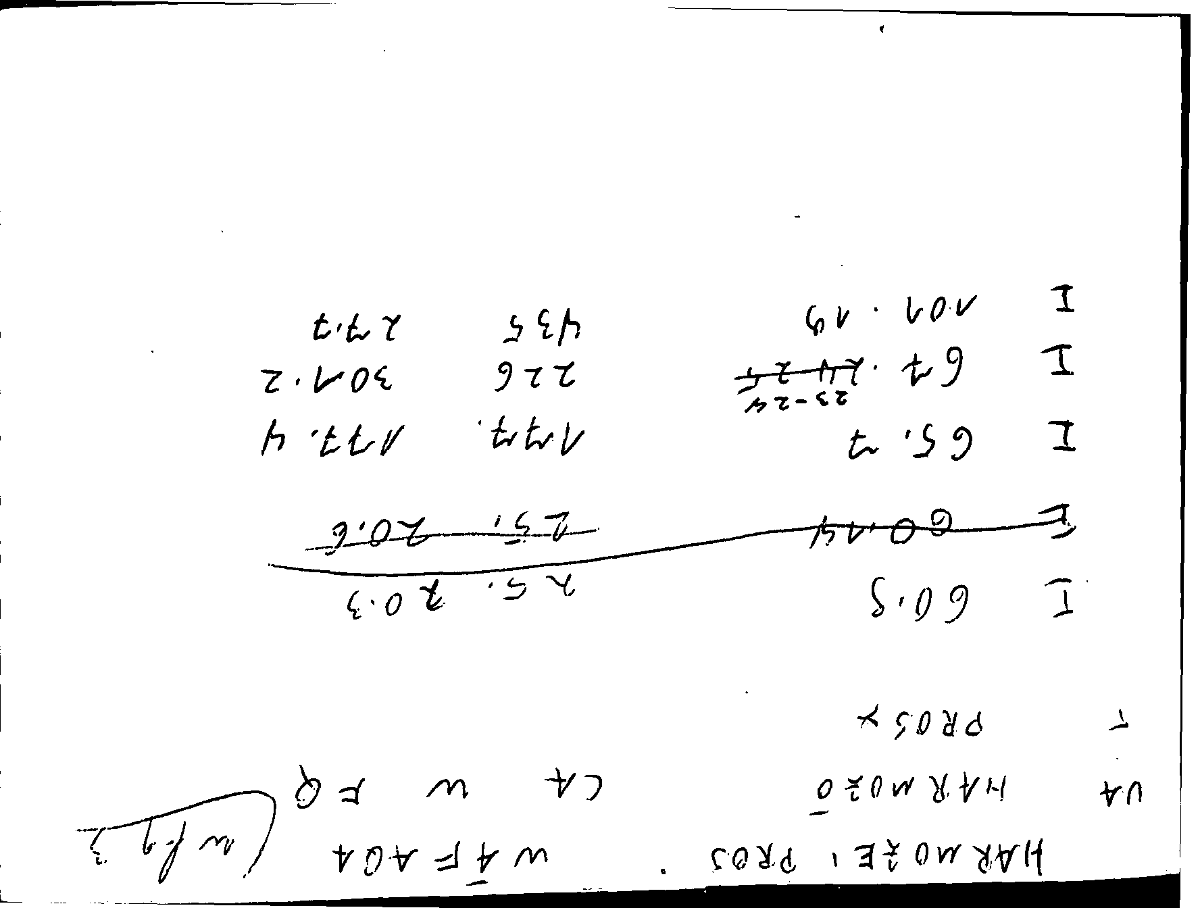 HARMOZE, PROS . WĀFAQA (wfq 3
VA HARMOZŌ CA W F Q
T PROS X
I 60.5 25. 20.3
I 60.14 25. 20.6
I 65.7 177. 177.4
23-24
I 67. 24 25 226 301.2
I 101.19 435 27.7